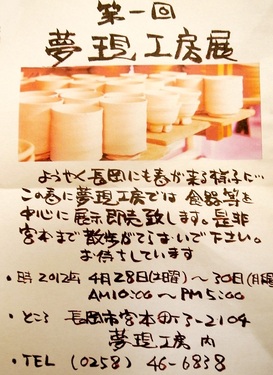 第一回
夢現工房展
ようやく長岡にも春が来る様子に…
この春に夢現工房では 食器等を
中心に展示即売致します。是非
宮本まで散歩がてらおいで下さい。
お待ちしています
・時 2012年 4月28日(土曜)〜30日(月曜)
AM10:00 〜 PM5:00
・ところ 長岡市宮本町3-2104
夢現工房 内
・TEL (0258) 46-6838